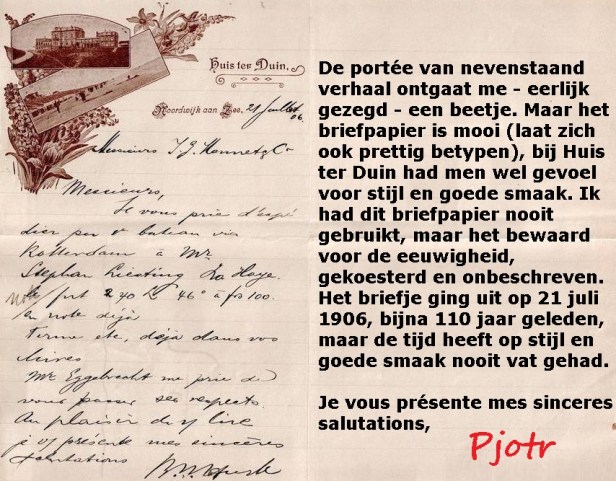 Huis ter Duin.
Noordwijk aan Zee, 21 Juillet 06.
Messieurs J. G. Monnet & Co
Messieurs,
Je vous prie d'expé
dier par bateau via
Rotterdam à Mr.
Stephan La Haye.
40 46° à frs 100.
en note déjà
Terme etc, déjà dans vos
livres
Mr. Eggebrecht me prie de
vous passer ses respects
Au plaisir de lire
je vs présente mes sincères
salutations
De portée van nevenstaand
verhaal ontgaat me - eerlijk
gezegd - een beetje. Maar het
briefpapier is mooi (laat zich
ook prettig betypen), bij Huis
ter Duin had men wel gevoel
voor stijl en goede smaak. Ik
had dit briefpapier nooit
gebruikt, maar het bewaard
voor de eeuwigheid,
gekoesterd en onbeschreven.
Het briefje ging uit op 21 juli
1906, bijna 110 jaar geleden,
maar de tijd heeft op stijl en
goede smaak nooit vat gehad.
Je vous présente mes sinceres
salutations,
Pjotr